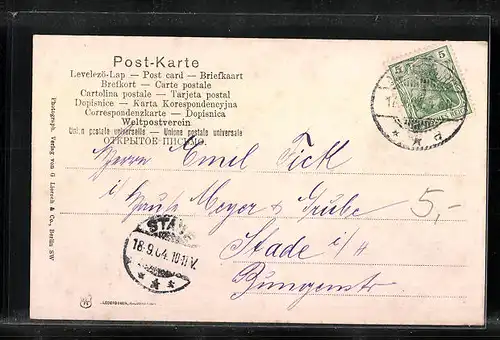 Post-Karte
Levelező-Lap — Post card — Briefkaart
Brefkort — Carte postale
Cartolina postale — Tarjeta postal
Dopisnice — Karta Korespondencyjna
Correspondenzkarte — Dopisnica
Weltpostverein
Union postale universelle — Unione postale universale
ОТКРЫТОЕ ПИСЬМО.
5 5
Herrn Emil
i/ Haus Meyer & Grube
5,-
Stade i/H
Bungenstr
STADE
18.9.04.10-11V.
Photograph. Verlag von G. Liersch & Co., Berlin SW